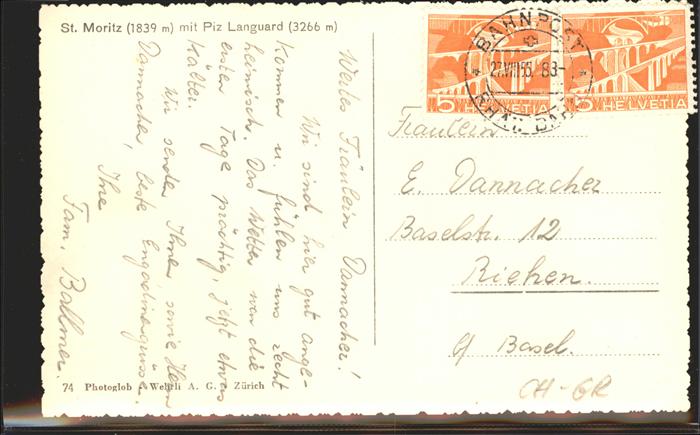 St. Moritz (1839 m) mit Piz Languard (3266 m)
Wertes Fräulein Dannacher!
Wir sind hier gut ange-
kommen u. fühlen uns recht
heimisch. Das Wetter war die
ersten Tage prächtig, jetzt etwas
kälter.
Wir senden Ihnen, sowie Herrn
Dannacher, beste Engadinergrüsse.
Ihre
Fam. Bollmer.
74 Photoglob-Wehrli A. G. Zürich
BAHNPOST
27.VII.55. 83-
RHÄT. BAHN
5 HELVETIA
5 HELVETIA
Fräulein
E. Dannacher
Baselstr. 12
Riehen.
b/ Basel.
CH-GR